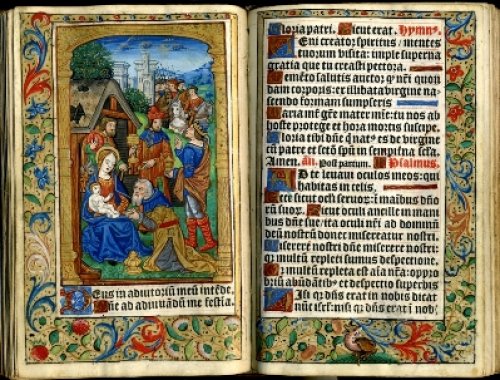 Eus in adiutoriũ meũ intẽde.
Dñe ad adiuuãdũ me festia.
Gloria patri. Sicut erat. Hymnꝰ
Eni creator spiritus / mentes
tuorum visita: imple superna
gratia que tu creasti pectora.
Memẽto salutis auctor qͥ nr̃i quon
dam corporis: ex illibata virgine na
scendo formam sumpseris
Maria mr̃ gr̃e mater mie: tu nos ab
hoste protege et hora mortis suscipe.
Gloria tibi dñe qͥ natus es de virgine
cũ patre et sctõ spũ in sempitna secla.
Amen. añ. Post partum. Psalmus.
AD te leuaui oculos meos: qui
habitas in celis.
Ecce sicut oculi seruorũ: ĩ manibus dño
rũ suorũ. Sicut oculi ancille in mani
bus dñe sue / ita oculi nr̃i ad dominũ
deũ nostrũ donec misereatur nostri.
Miserere nostri dñe miserere nostri:
qꝛ multũ repleti sumus despectione.
Quia multũ repleta est aĩa nr̃a: oppro
briũ abũdãtibus et despectio superbis
Isi qꝛ dñs erat in nobis dicat
nũc isrl: nisi qꝛ dñs erat ĩ nob̃.